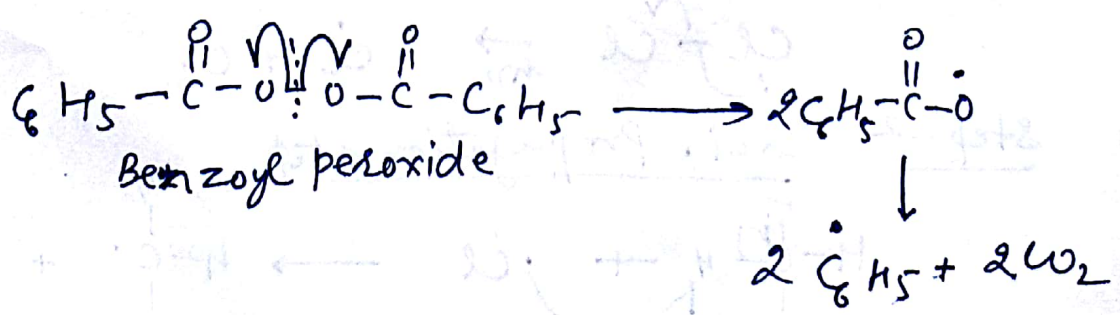 C6H5-C(=O)-O-O-C(=O)-C6H5 ⟶ 2C6H5-C(=O)-Ȯ
Benzoyl peroxide
↓
2 Ċ6H5 + 2CO2